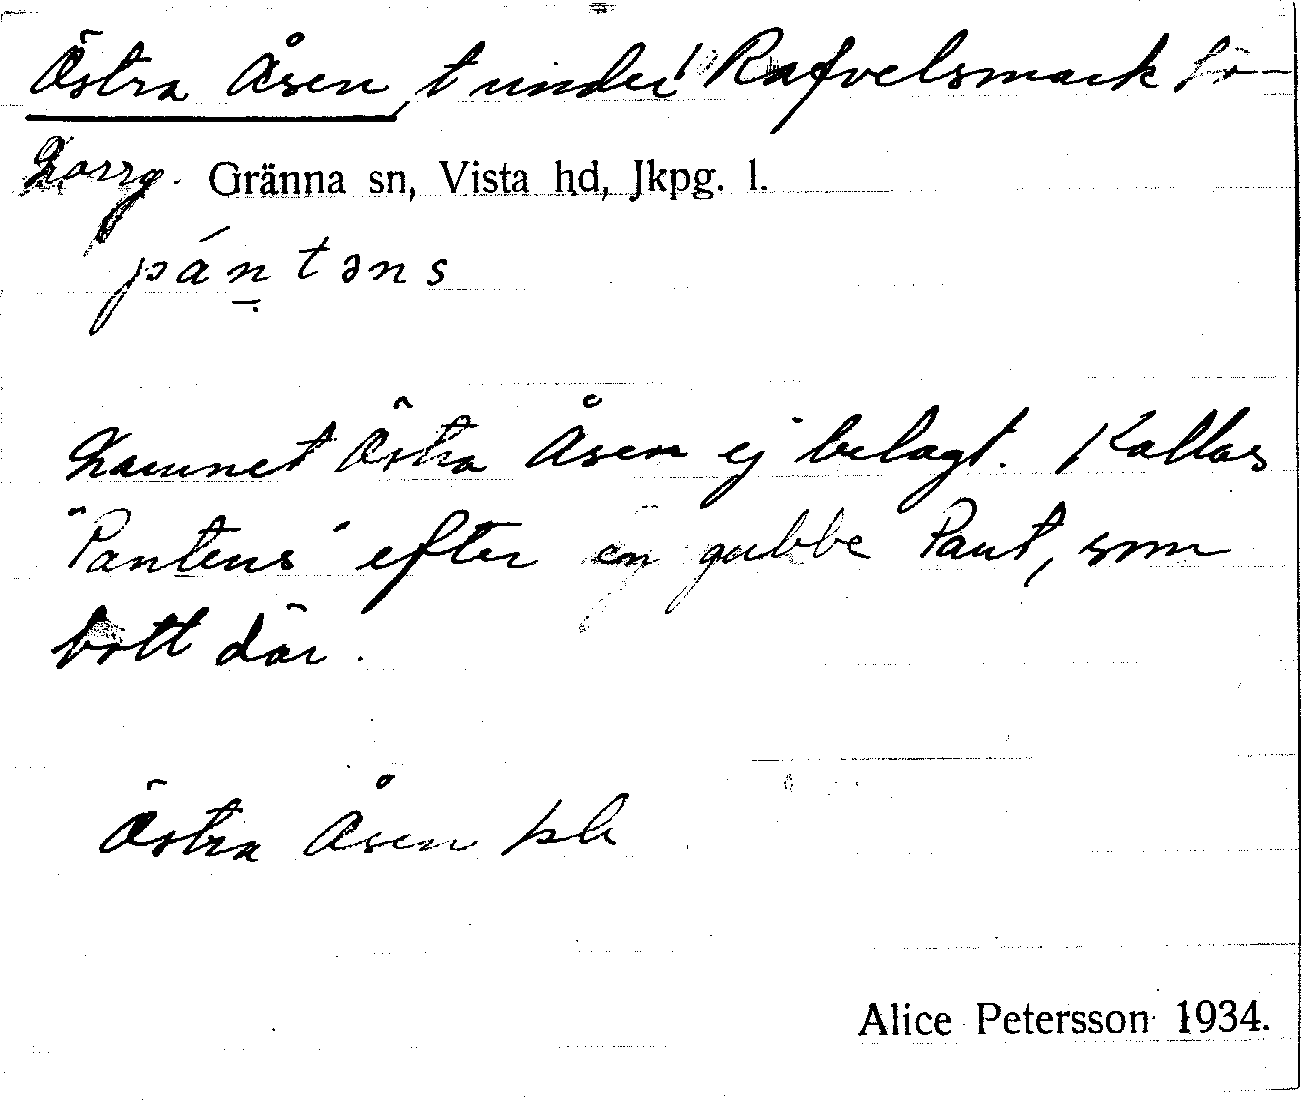 Östra Åsen, t under Rafvelsmark Sö-
Norrg. Gränna sn, Vista hd, Jkpg. l.
pántəns
Namnet Östra Åsen ej belagt. Kallas
"Pantens" efter en gubbe Pant, som
bott där.
Östra Åsen
Alice Petersson 1934.